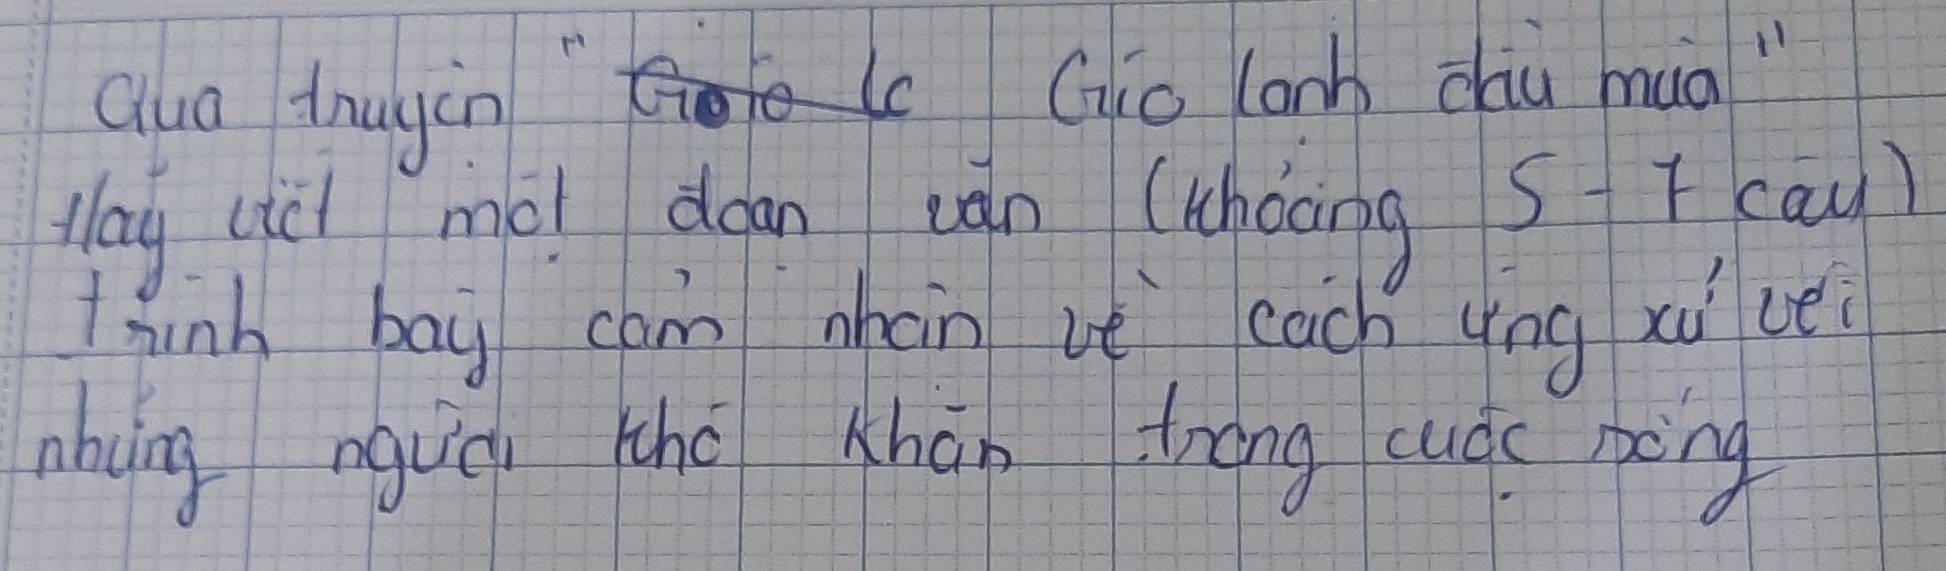 Qua truyện "Gió lạnh đầu mùa"
Hãy viết một đoạn văn (khoảng 5 - 7 câu)
trình bày cảm nhận về cách ứng xử với
những người khó khăn trong cuộc sống